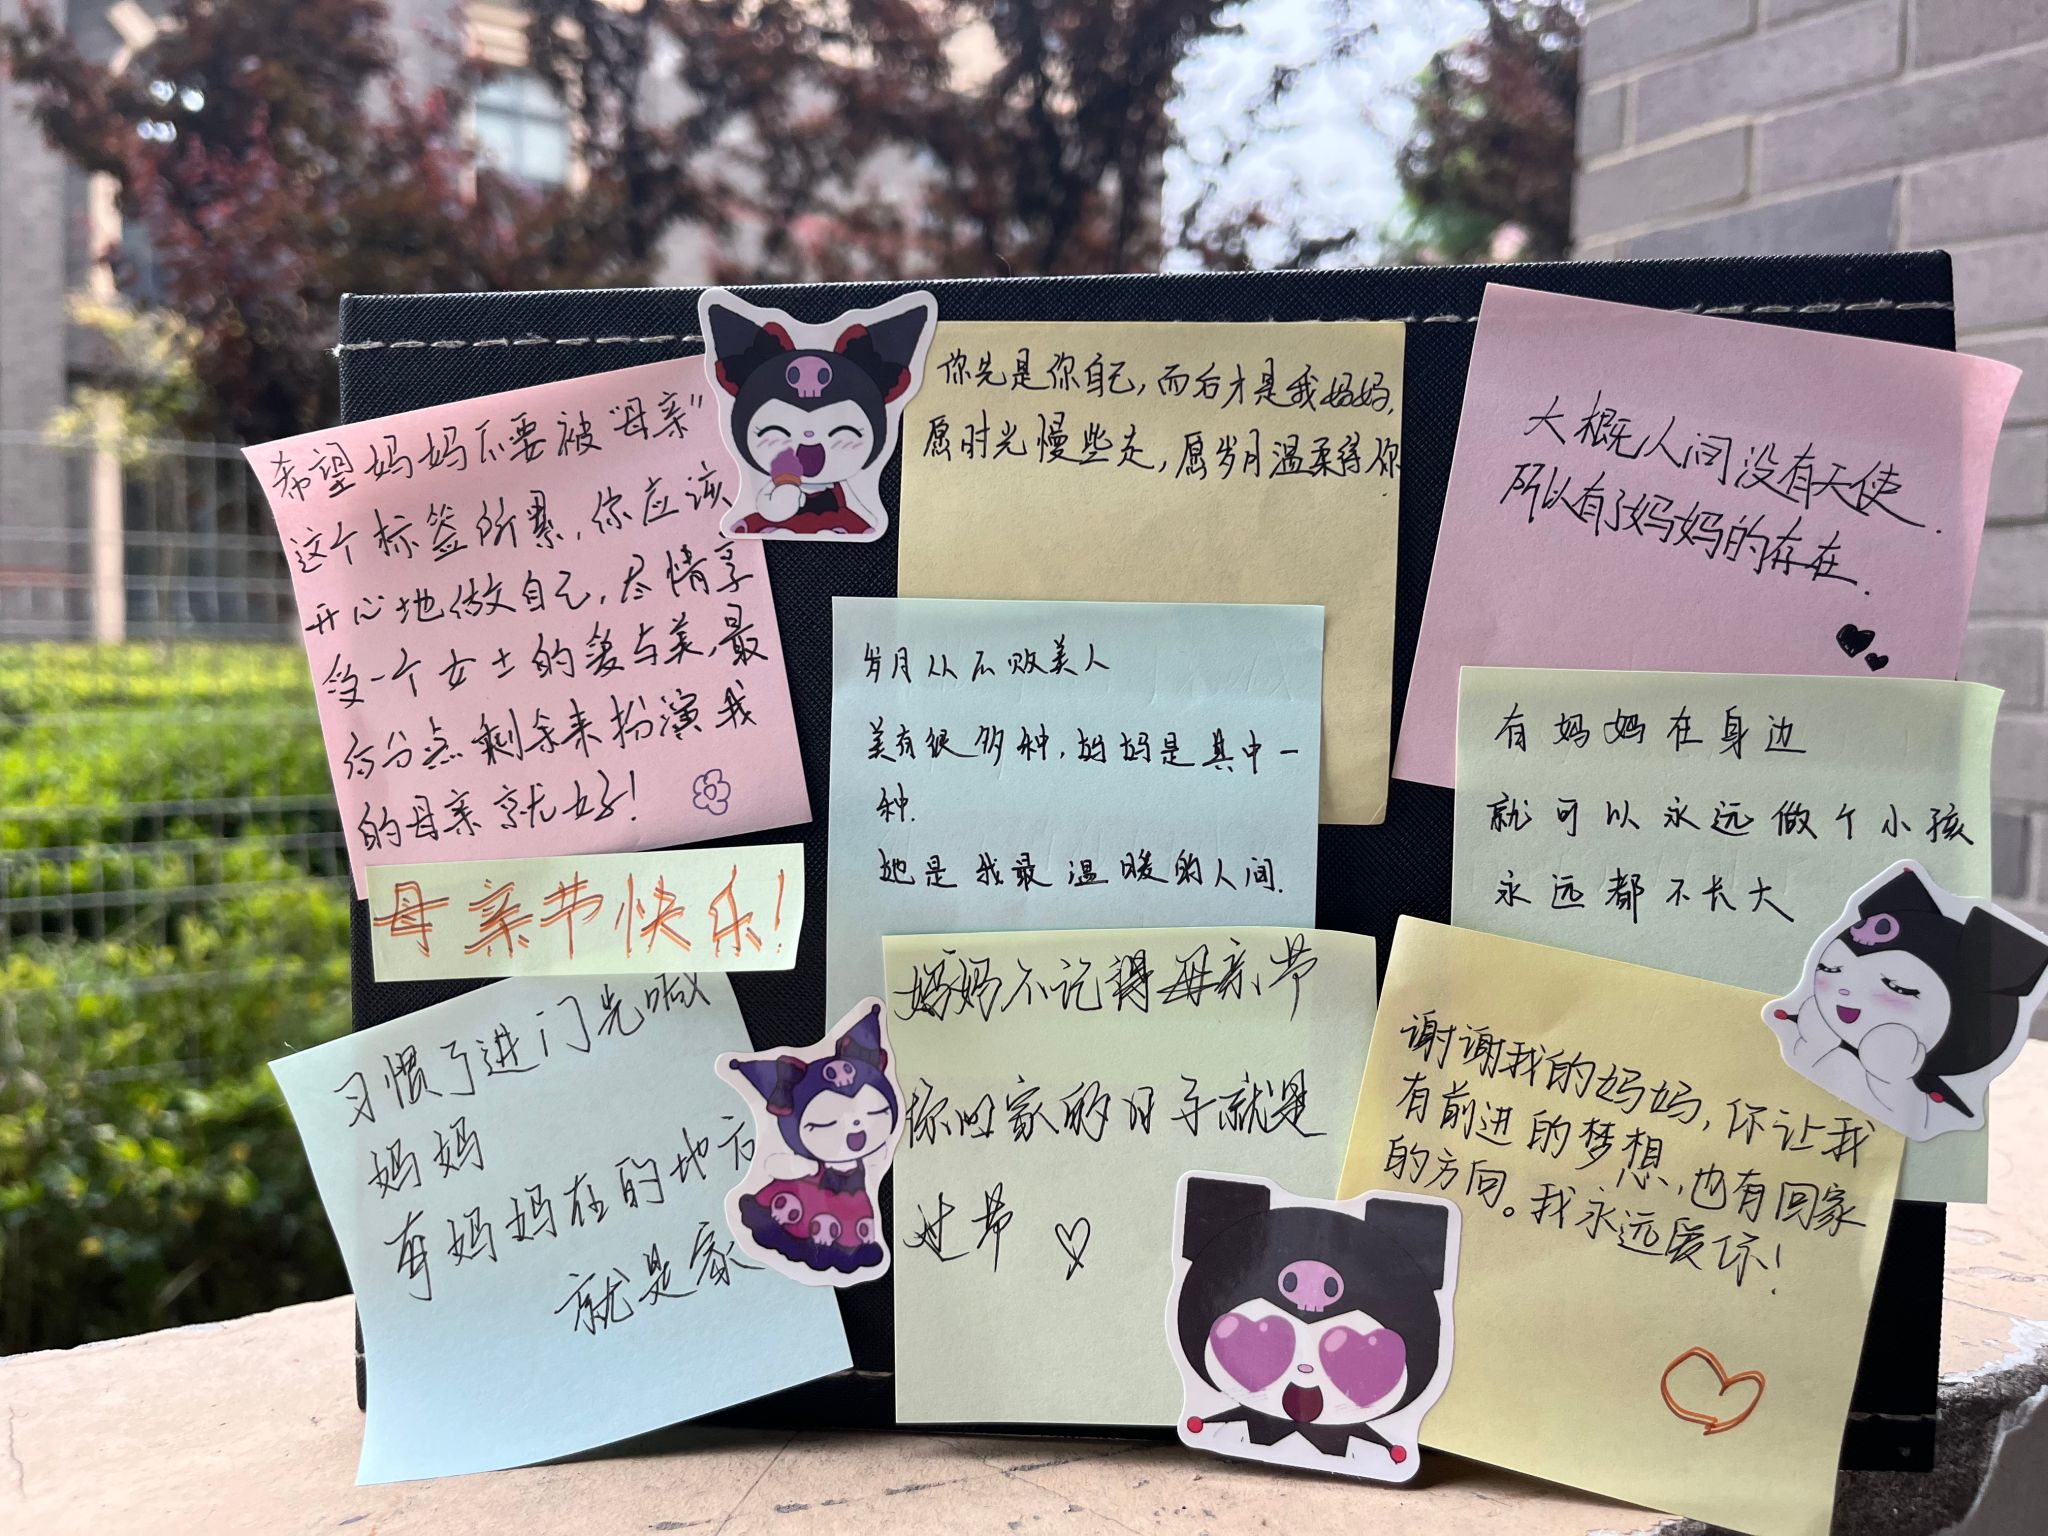 希望妈妈不要被“母亲”
这个标签所累，你应该
开心地做自己，尽情享
受一个女士的爱与美，最
后分点剩余来扮演我
的母亲就好！
母亲节快乐！
习惯了进门先喊
妈妈
有妈妈在的地方
就是家
你先是你自己，而后才是我妈妈，
愿时光慢些走，愿岁月温柔待你
岁月从不败美人
美有很多种，妈妈是其中一
种.
她是我最温暖的人间.
妈妈不记得母亲节
你回家的日子就是
过节
大概人间没有天使.
所以有了妈妈的存在.
有妈妈在身边
就可以永远做个小孩
永远都不长大
谢谢我的妈妈，你让我
有前进的梦想，也有回家
的方向。我永远爱你！